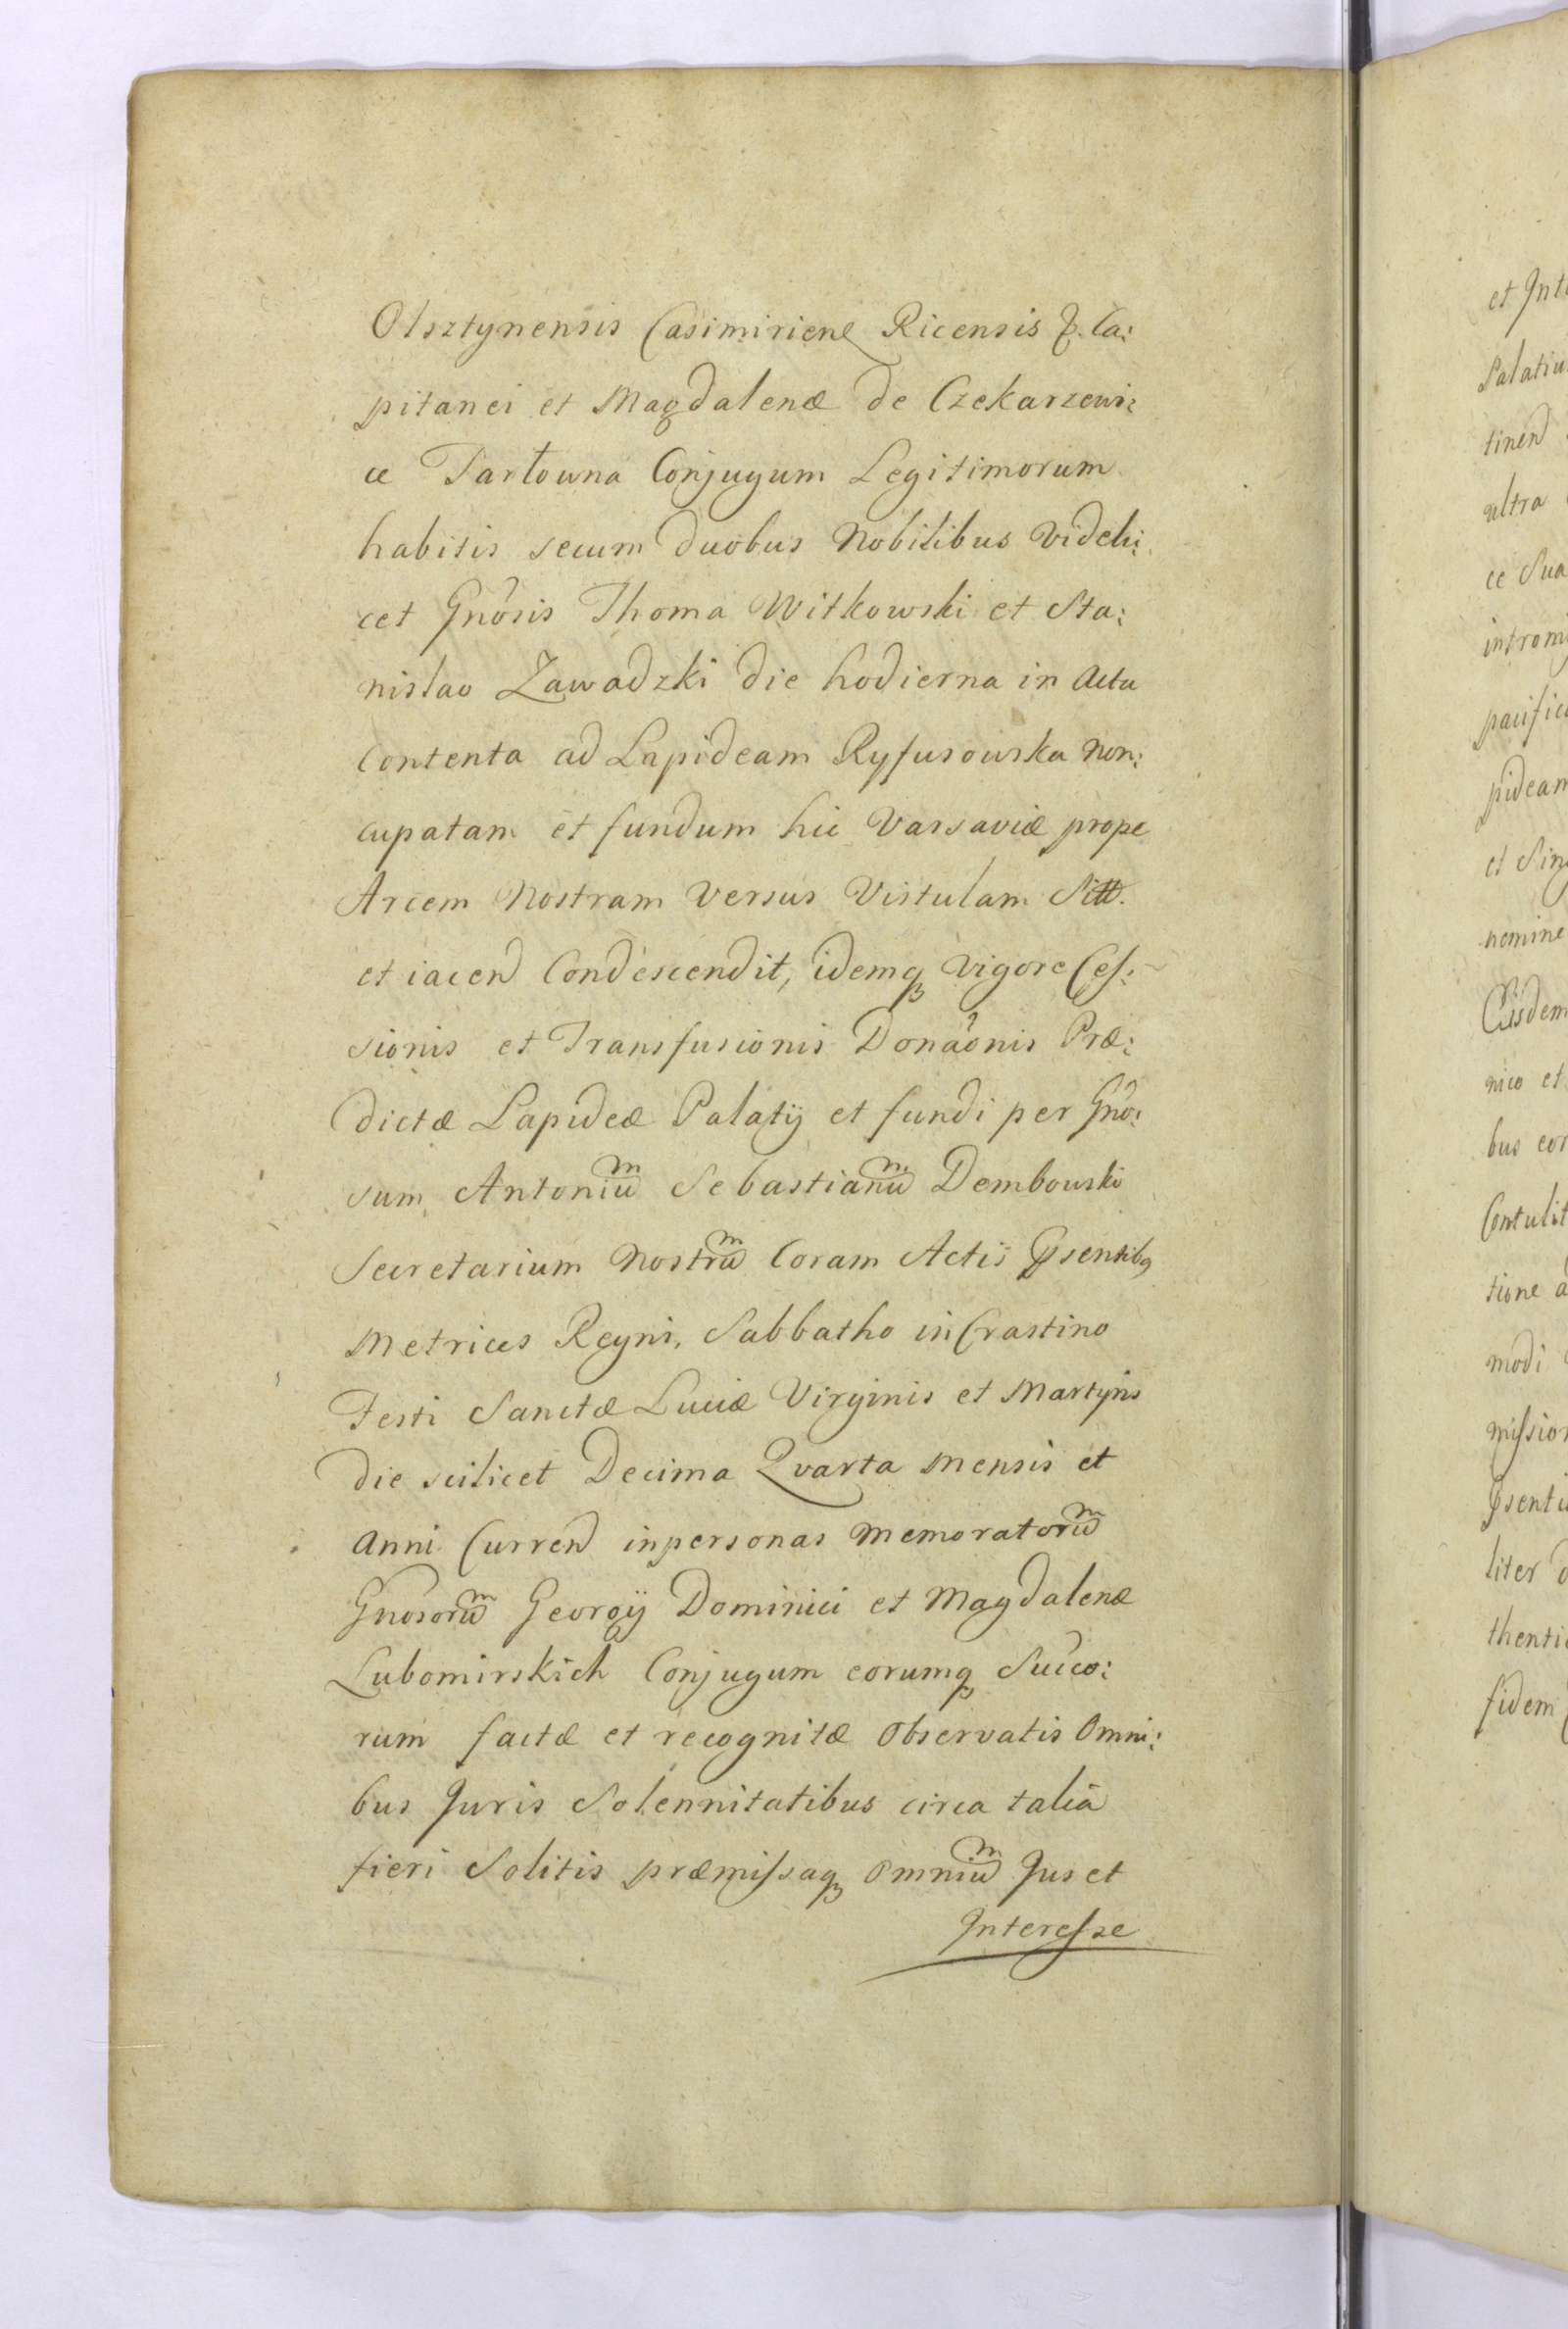 Olsztynensis Casimirienę Ricensis & Ca:
pitanei et Magdalenæ de Czekarzewi:
ce Tarłowna Conjugum Legitimorum
habitis secum duobus Nobilibus Videli:
cet Gnosis Thoma Witkowski et Sta:
nislao Zawadzki die hodierna in Actu
Contenta ad Lapideam Ryfusowska Non:
cupatam et fundum hic Varsaviæ prope
Arcem Nostram Versus Vistulam Sitt.
et iacend Condescendit, idemq Vigore Ces:
sionis et Transfusionis Donaonis Præ:
dictæ Lapideæ Palatij et fundi per Gno:
sum Antoniũm Sebastianũm Dembowski
Secretarium Nostrũm Coram Actis Psentibq
Metrices Regni, Sabbatho in Crastino
Festi Sanctæ Luciæ Virginis et Martyris
die scilicet Decima Qvarta Mensis et
Anni Currend inpersonas Memoratorũm
Gnosorũm Georgij Dominici et Magdalenæ
Lubomirskich Conjugum eorumq Succo:
rum factæ et recognitæ Observatis Omni:
bus Juris Solennitatibus circa talia
fieri Solitis præmissaq Omniũm Jus et
Interesse
et Int
Palatiu
tinend
ultra
ce Sua
intromi
pacific
pidean
et Sing
nomine
Eisdem
nico et
bus cor
Contulit
tione a
modi
mission
Psenti
liter d
thenti
fidem